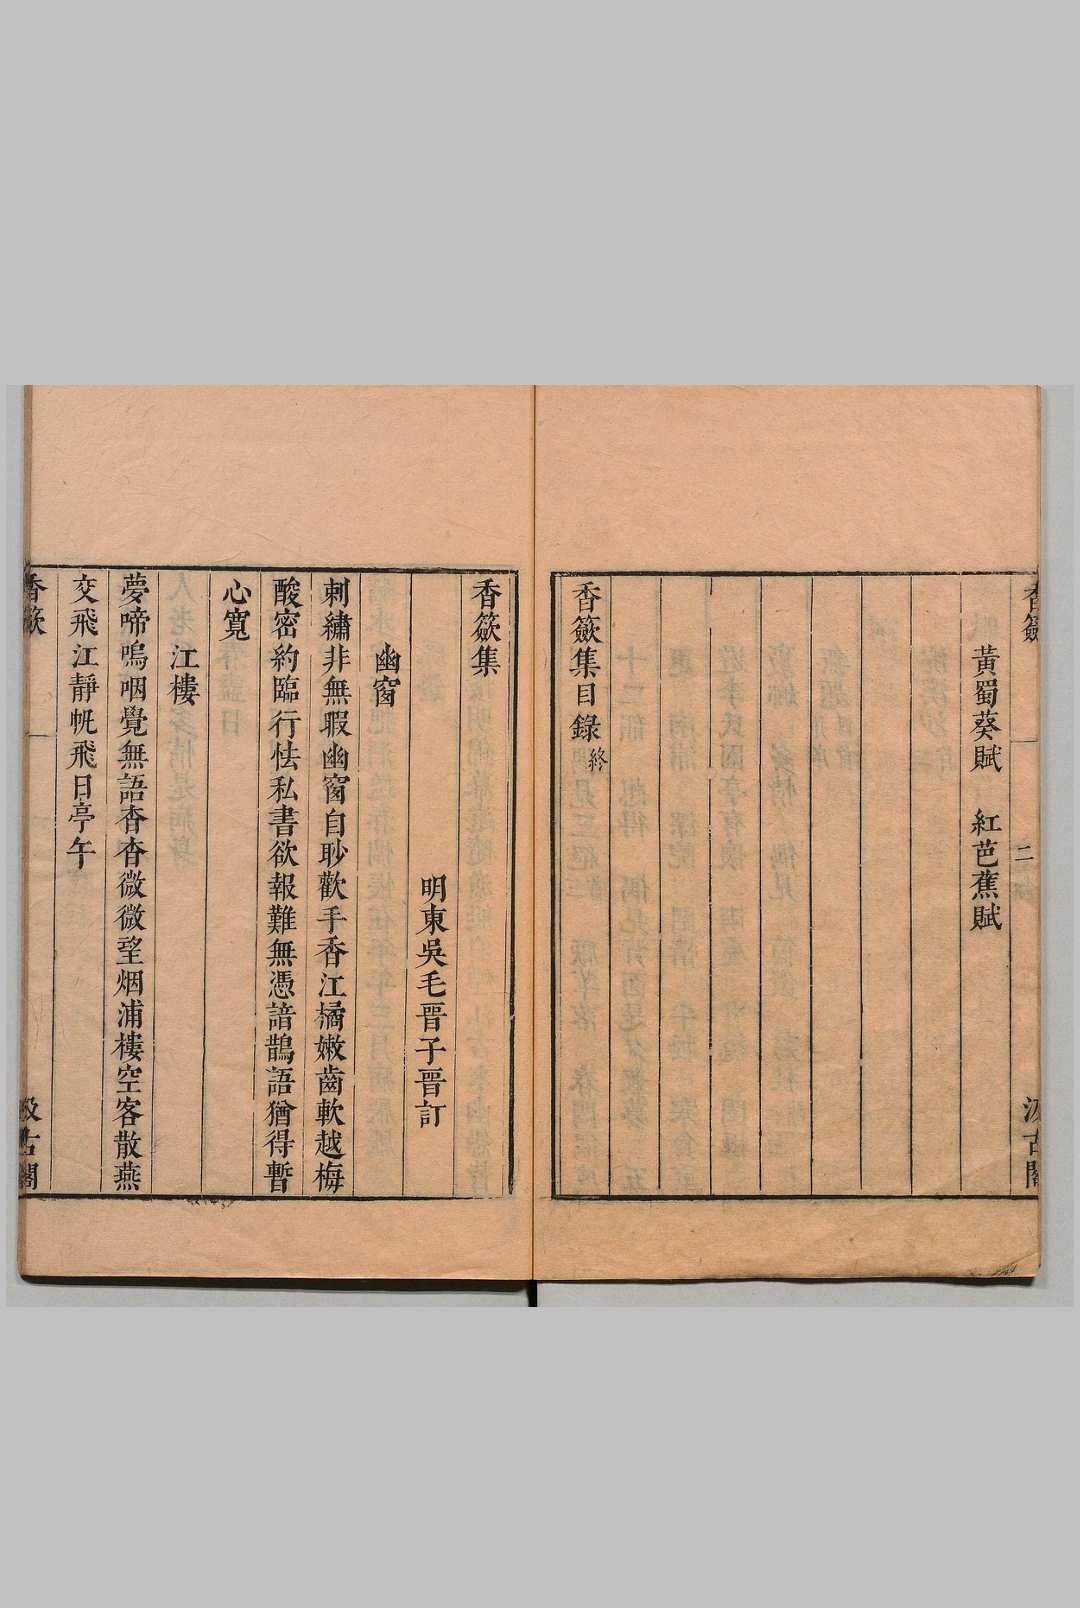 香籢
二
汲古閣
黃蜀葵賦　紅芭蕉賦
香籢集目錄終
香籢集
明東吳毛晉子晉訂
幽窗
刺繡非無暇幽窗自尠歡手香江橘嫩齒軟越梅
酸密約臨行怯私書欲報難無憑諳鵲語猶得暫
心寬
江樓
夢啼嗚咽覺無語杳杳微微望烟浦樓空客散燕
交飛江靜帆飛日亭午
香籢
一
汲古閣